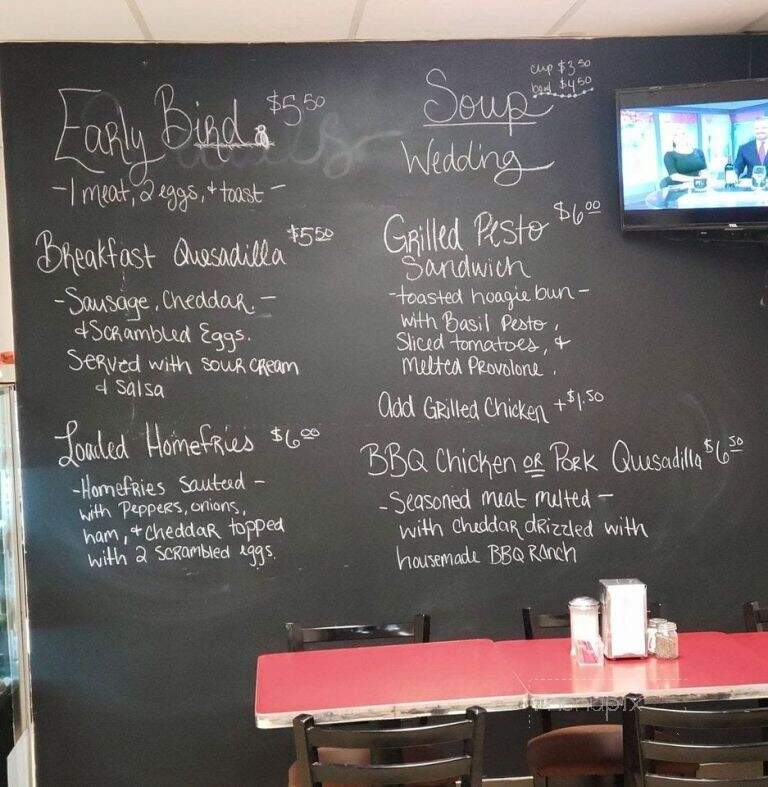 Early Bird $5.50
- 1 meat, 2 eggs, + toast -
Breakfast Quesadilla $5.50
- Sausage, Cheddar, -
+ Scrambled Eggs.
Served with sour cream
+ Salsa
Loaded Homefries $6.00
- Homefries Sauteed -
with Peppers, onions,
ham, + cheddar topped
with 2 scrambled eggs.
Soup
cup $3.50
bowl $4.50
Wedding
Grilled Pesto $6.00
Sandwich
- toasted hoagie bun -
with Basil Pesto,
Sliced tomatoes, +
Melted Provolone.
Add Grilled Chicken + $1.50
BBQ Chicken or Pork Quesadilla $6.50
- Seasoned meat melted -
with cheddar drizzled with
housemade BBQ Ranch
TCL